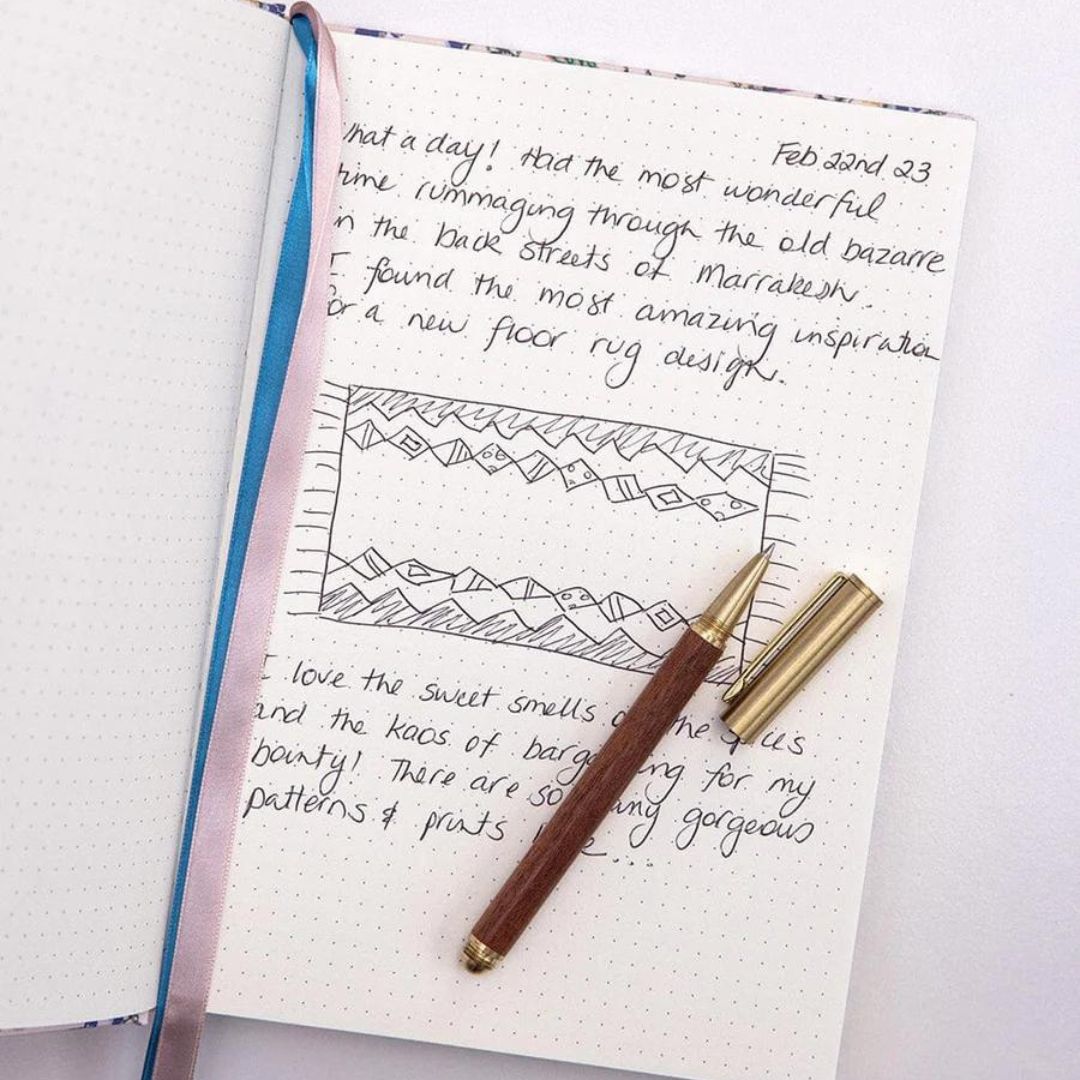 Feb 22nd 23
What a day! Had the most wonderful
time rummaging through the old bazarre
in the back streets of Marrakesh.
I found the most amazing inspiration
for a new floor rug design.
I love the sweet smells of the spices
and the kaos of bargaining for my
bounty! There are so many gorgeous
patterns & prints here...